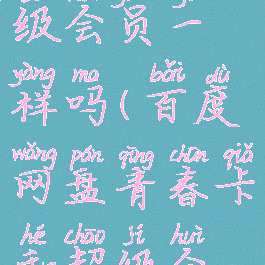 级会员一
yàng ma bǎi dù
样吗(百度
wǎng pán qīng chūn qiǎ
网盘青春卡
hé chāo jí huì
和超级会